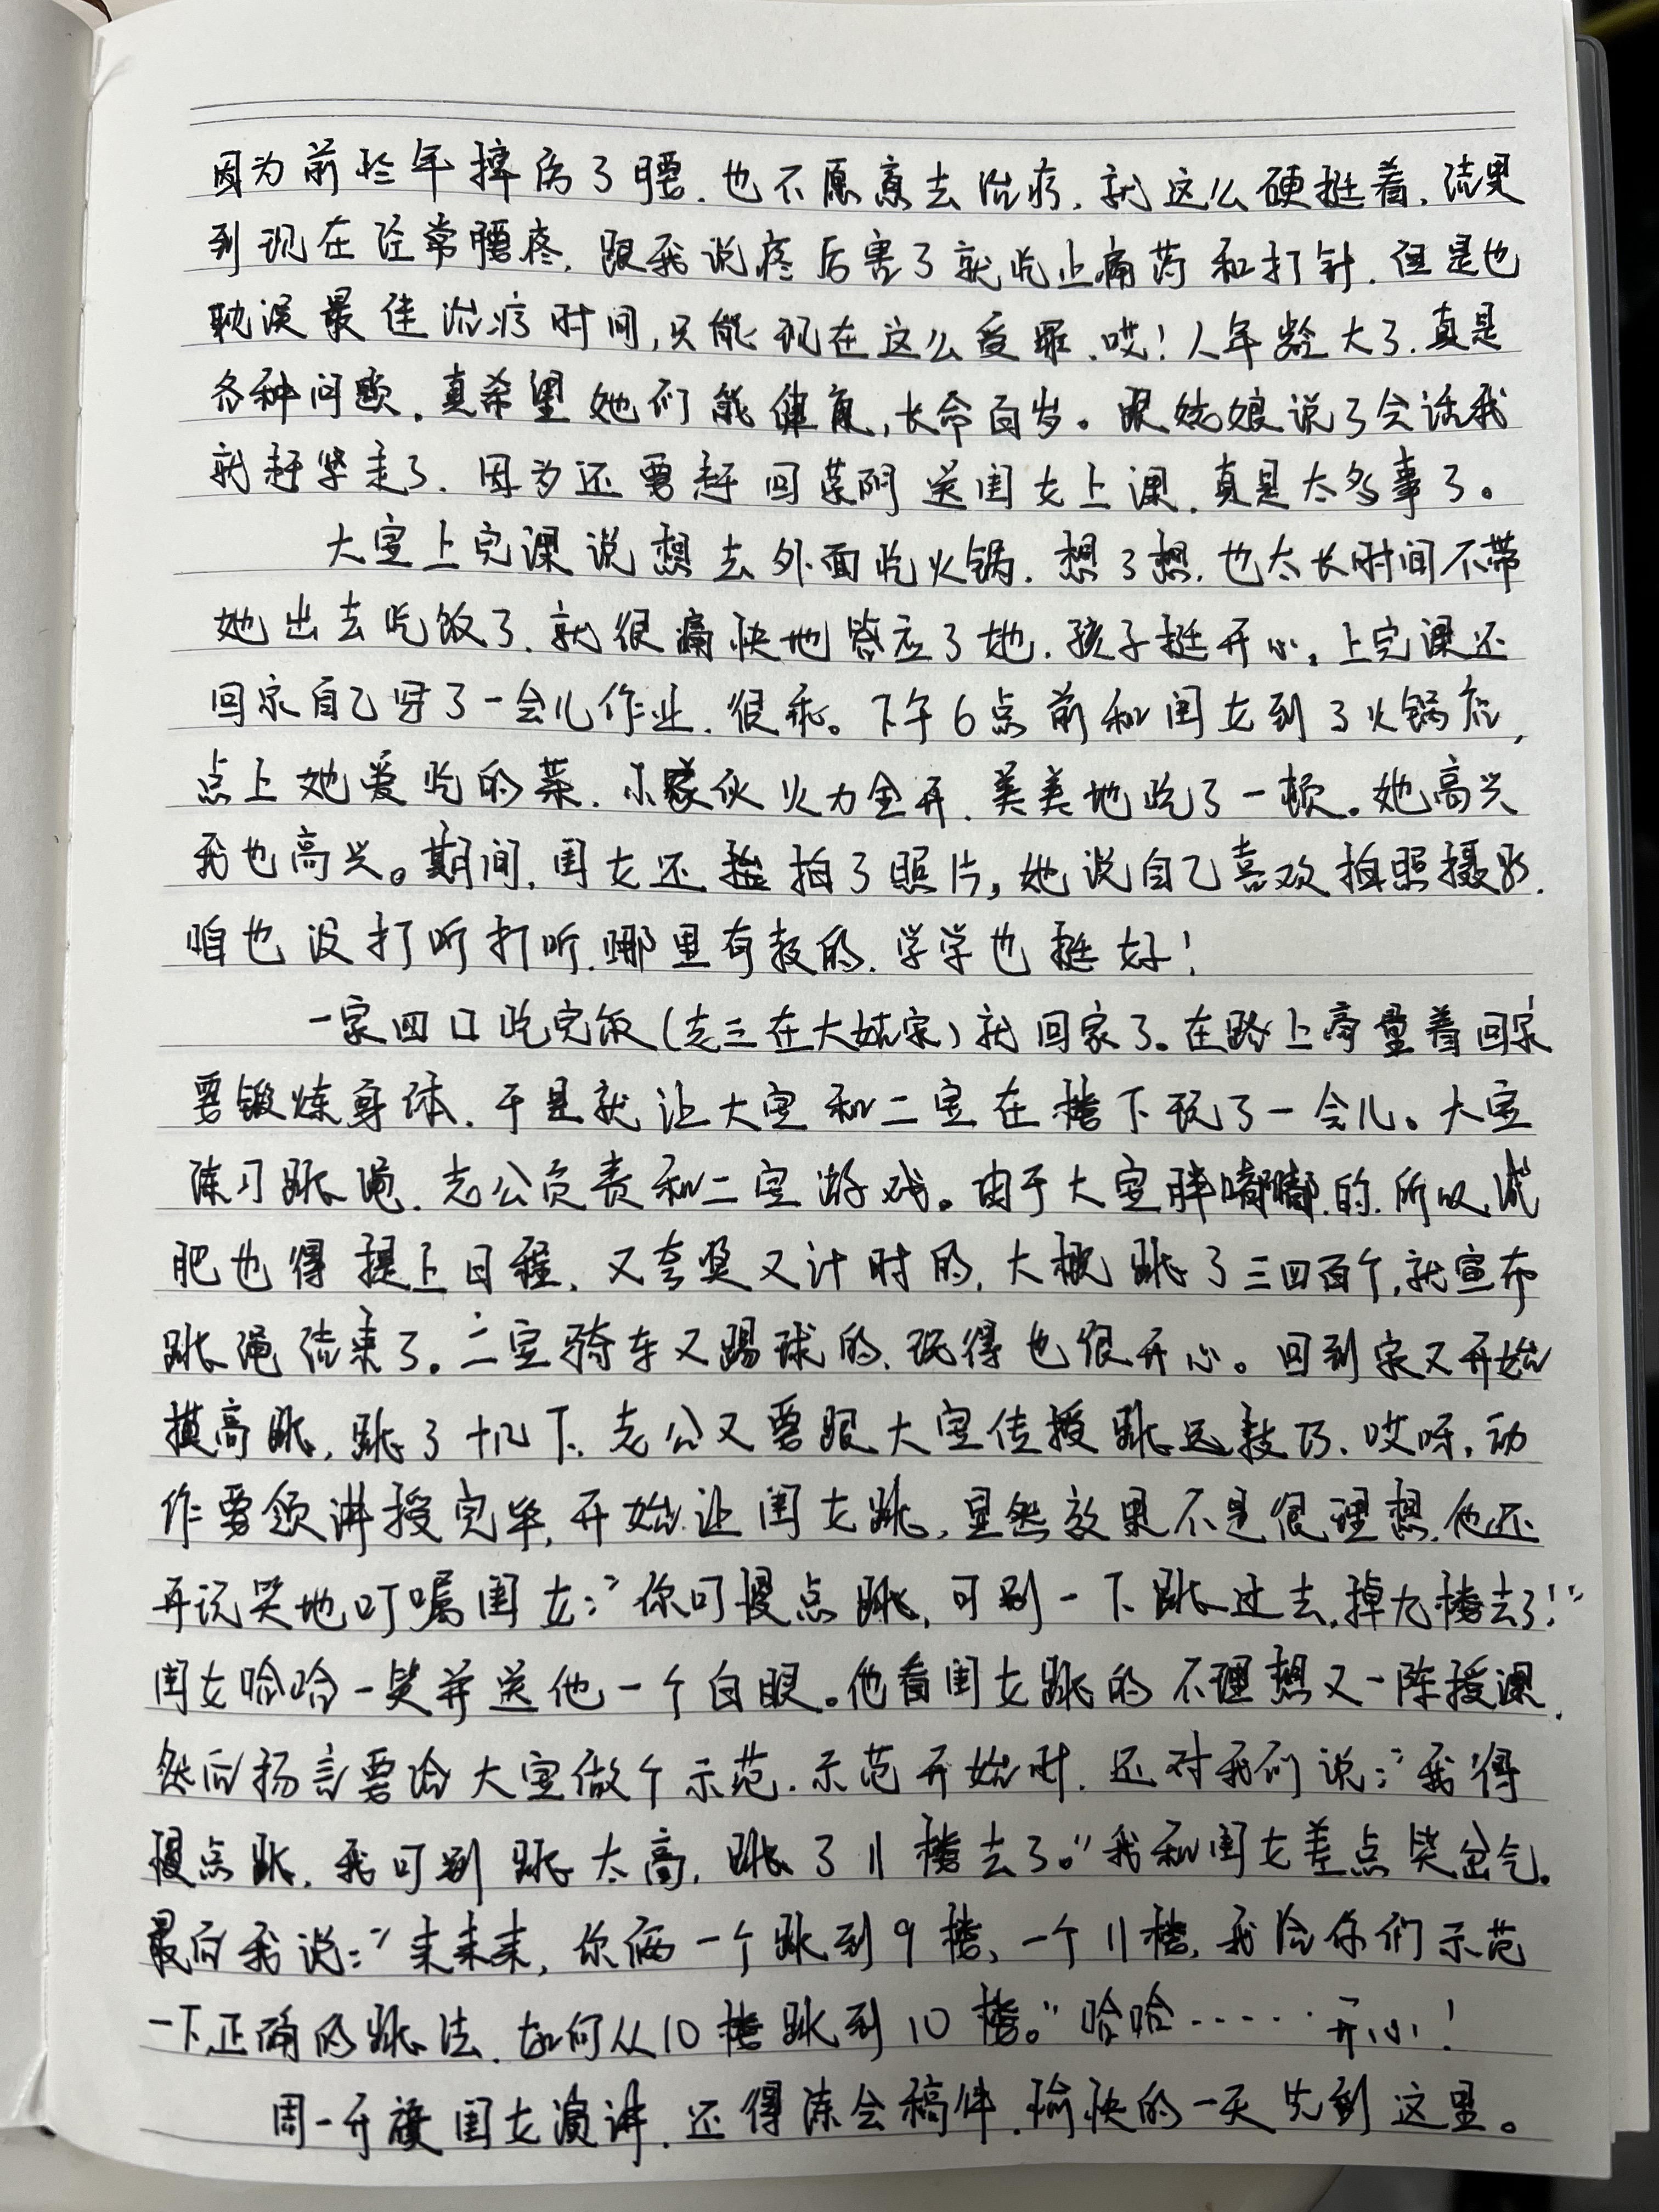 因为前些年摔伤了腰，也不愿意去治疗，就这么硬挺着，结果
到现在经常腰疼，跟我说疼厉害了就吃止痛药和打针，但是也
耽误最佳治疗时间，只能现在这么受罪，哎！人年龄大了，真是
各种问题，真希望她们能健康，长命百岁。跟姑娘说了会话我
就赶紧走了，因为还要赶回莱阴送闺女上课，真是太多事了。
大宝上完课说想去外面吃火锅，想了想，也太长时间不带
她出去吃饭了，就很痛快地答应了她，孩子挺开心，上完课还
回家自己写了一会儿作业，很乖。下午6点前和闺女到了火锅店，
点上她爱吃的菜，小家伙火力全开，美美地吃了一顿。她高兴
我也高兴。期间，闺女还拍了照片，她说自己喜欢拍照摄影，
咱也没打听打听，哪里有教的，学学也挺好！
一家四口吃完饭（老三在大姑家）就回家了。在路上商量着回家
要锻炼身体，于是就让大宝和二宝在楼下玩了一会儿。大宝
练习跳绳，老公负责和二宝游戏。由于大宝胖嘟嘟的，所以减
肥也得提上日程，又夸奖又计时的，大概跳了三四百个，就宣布
跳绳结束了。二宝骑车又踢球的，玩得也很开心。回到家又开始
摸高跳，跳了十几下，老公又要跟大宝传授跳远技巧，哎呀，动
作要领讲授完毕，开始让闺女跳，显然效果不是很理想，他还
开玩笑地叮嘱闺女：“你可慢点跳，可别一下跳过去，掉九楼去了！”
闺女哈哈一笑并送他一个白眼。他看闺女跳的不理想又一阵授课，
然后扬言要给大宝做个示范，示范开始时，还对我们说：“我得
慢点跳，我可别跳太高，跳了11楼去了。”我和闺女差点笑岔气。
最后我说：“来来来，你俩一个跳到9楼，一个11楼，我给你们示范
一下正确的跳法，如何从10楼跳到10楼。”哈哈……开心！
周一升旗闺女演讲，还得练会稿件，愉快的一天先到这里。